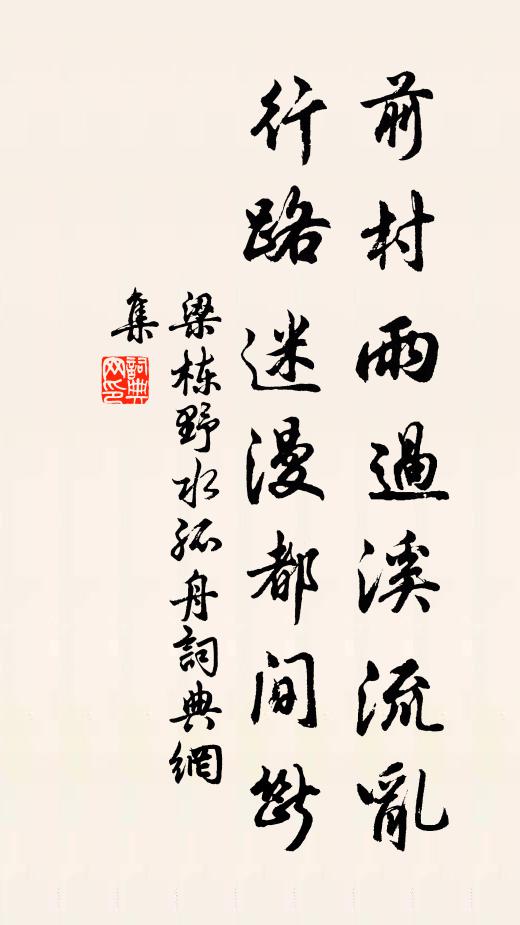 前村雨過溪流亂
行路迷漫都間斷
梁栋野水孤舟詞典網
集
詞典网印